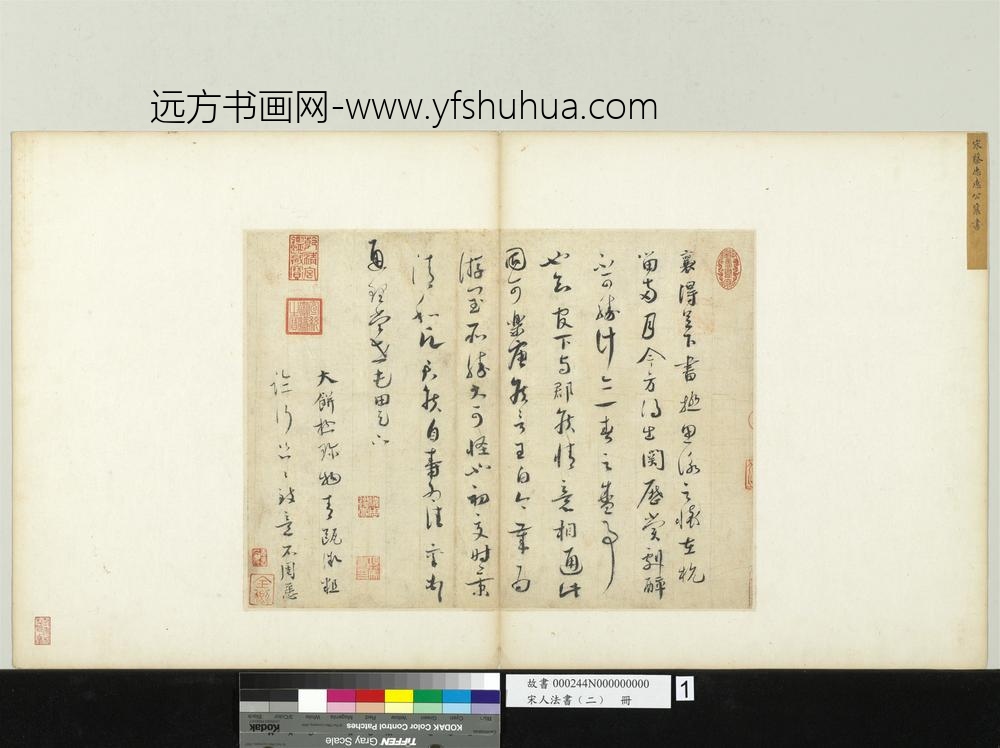 远方书画网-www.yfshuhua.com
宋蔡忠惠公襄書
襄得足下書極思詠之懷在杭
留兩月今方得出關歷賞劇醉
不可勝計亦一春之盛事
也知官下与郡侯情意相通此
固可樂唐侯言王白今歲為
游閏所勝大可怪也初夏時景
清和願君侯自壽為佳襄頓首
通理當世屯田足下
大餅極珍物青甌微粗
臨行匆匆致意不周悉
故書 000244N000000000
宋人法書（二） 冊
1
KODAK Color Control Patches
TIFFEN Gray Scale